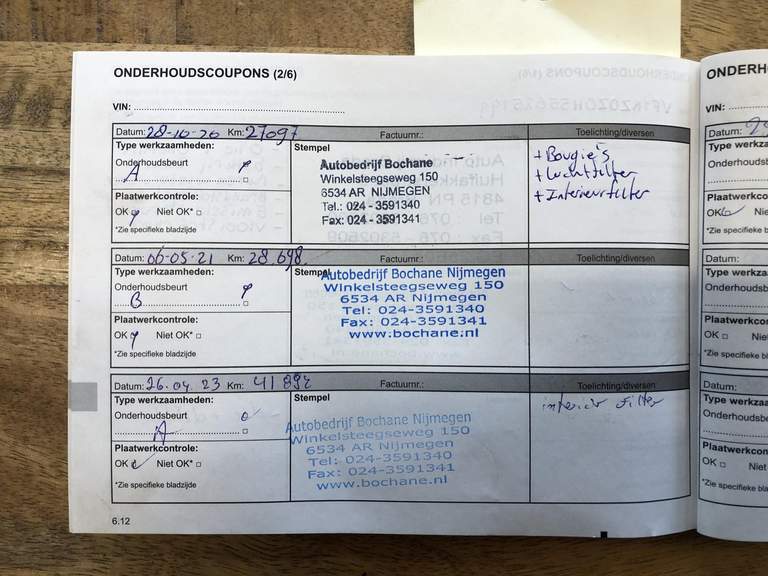 ONDERHOUDSCOUPONS (2/6)
VIN:
Datum: 28-10-20 Km: 27097 Factuurnr.: Toelichting/diversen
Type werkzaamheden:
Onderhoudsbeurt
A
Plaatwerkcontrole:
OK Niet OK*
*Zie specifieke bladzijde
Stempel
Autobedrijf Bochane
Winkelsteegseweg 150
6534 AR NIJMEGEN
Tel.: 024 - 3591340
Fax: 024 - 3591341
+ Bougie's
+ Luchtfilter
+ Interieurfilter
Datum: 06-05-21 Km: 28.698 Factuurnr.: Toelichting/diversen
Type werkzaamheden:
Onderhoudsbeurt
B
Plaatwerkcontrole:
OK Niet OK*
*Zie specifieke bladzijde
Stempel
Autobedrijf Bochane Nijmegen
Winkelsteegseweg 150
6534 AR Nijmegen
Tel: 024-3591340
Fax: 024-3591341
www.bochane.nl
Datum: 26.04.23 Km: 41892 Factuurnr.: Toelichting/diversen
Type werkzaamheden:
Onderhoudsbeurt
A
Plaatwerkcontrole:
OK Niet OK*
*Zie specifieke bladzijde
Stempel
Autobedrijf Bochane Nijmegen
Winkelsteegseweg 150
6534 AR Nijmegen
Tel: 024-3591340
Fax: 024-3591341
www.bochane.nl
interieur filter
6.12
ONDERH
VIN:
Datum:
Type werkza
Onderhoudsb
Plaatwerkcon
OK Niet
*Zie specifieke bla
Datum:
Type werkza
Onderhoudsb
Plaatwerkco
OK Niet
*Zie specifieke bla
Datum:
Type werkza
Onderhoudsb
Plaatwerkcon
OK Niet
*Zie specifieke bla